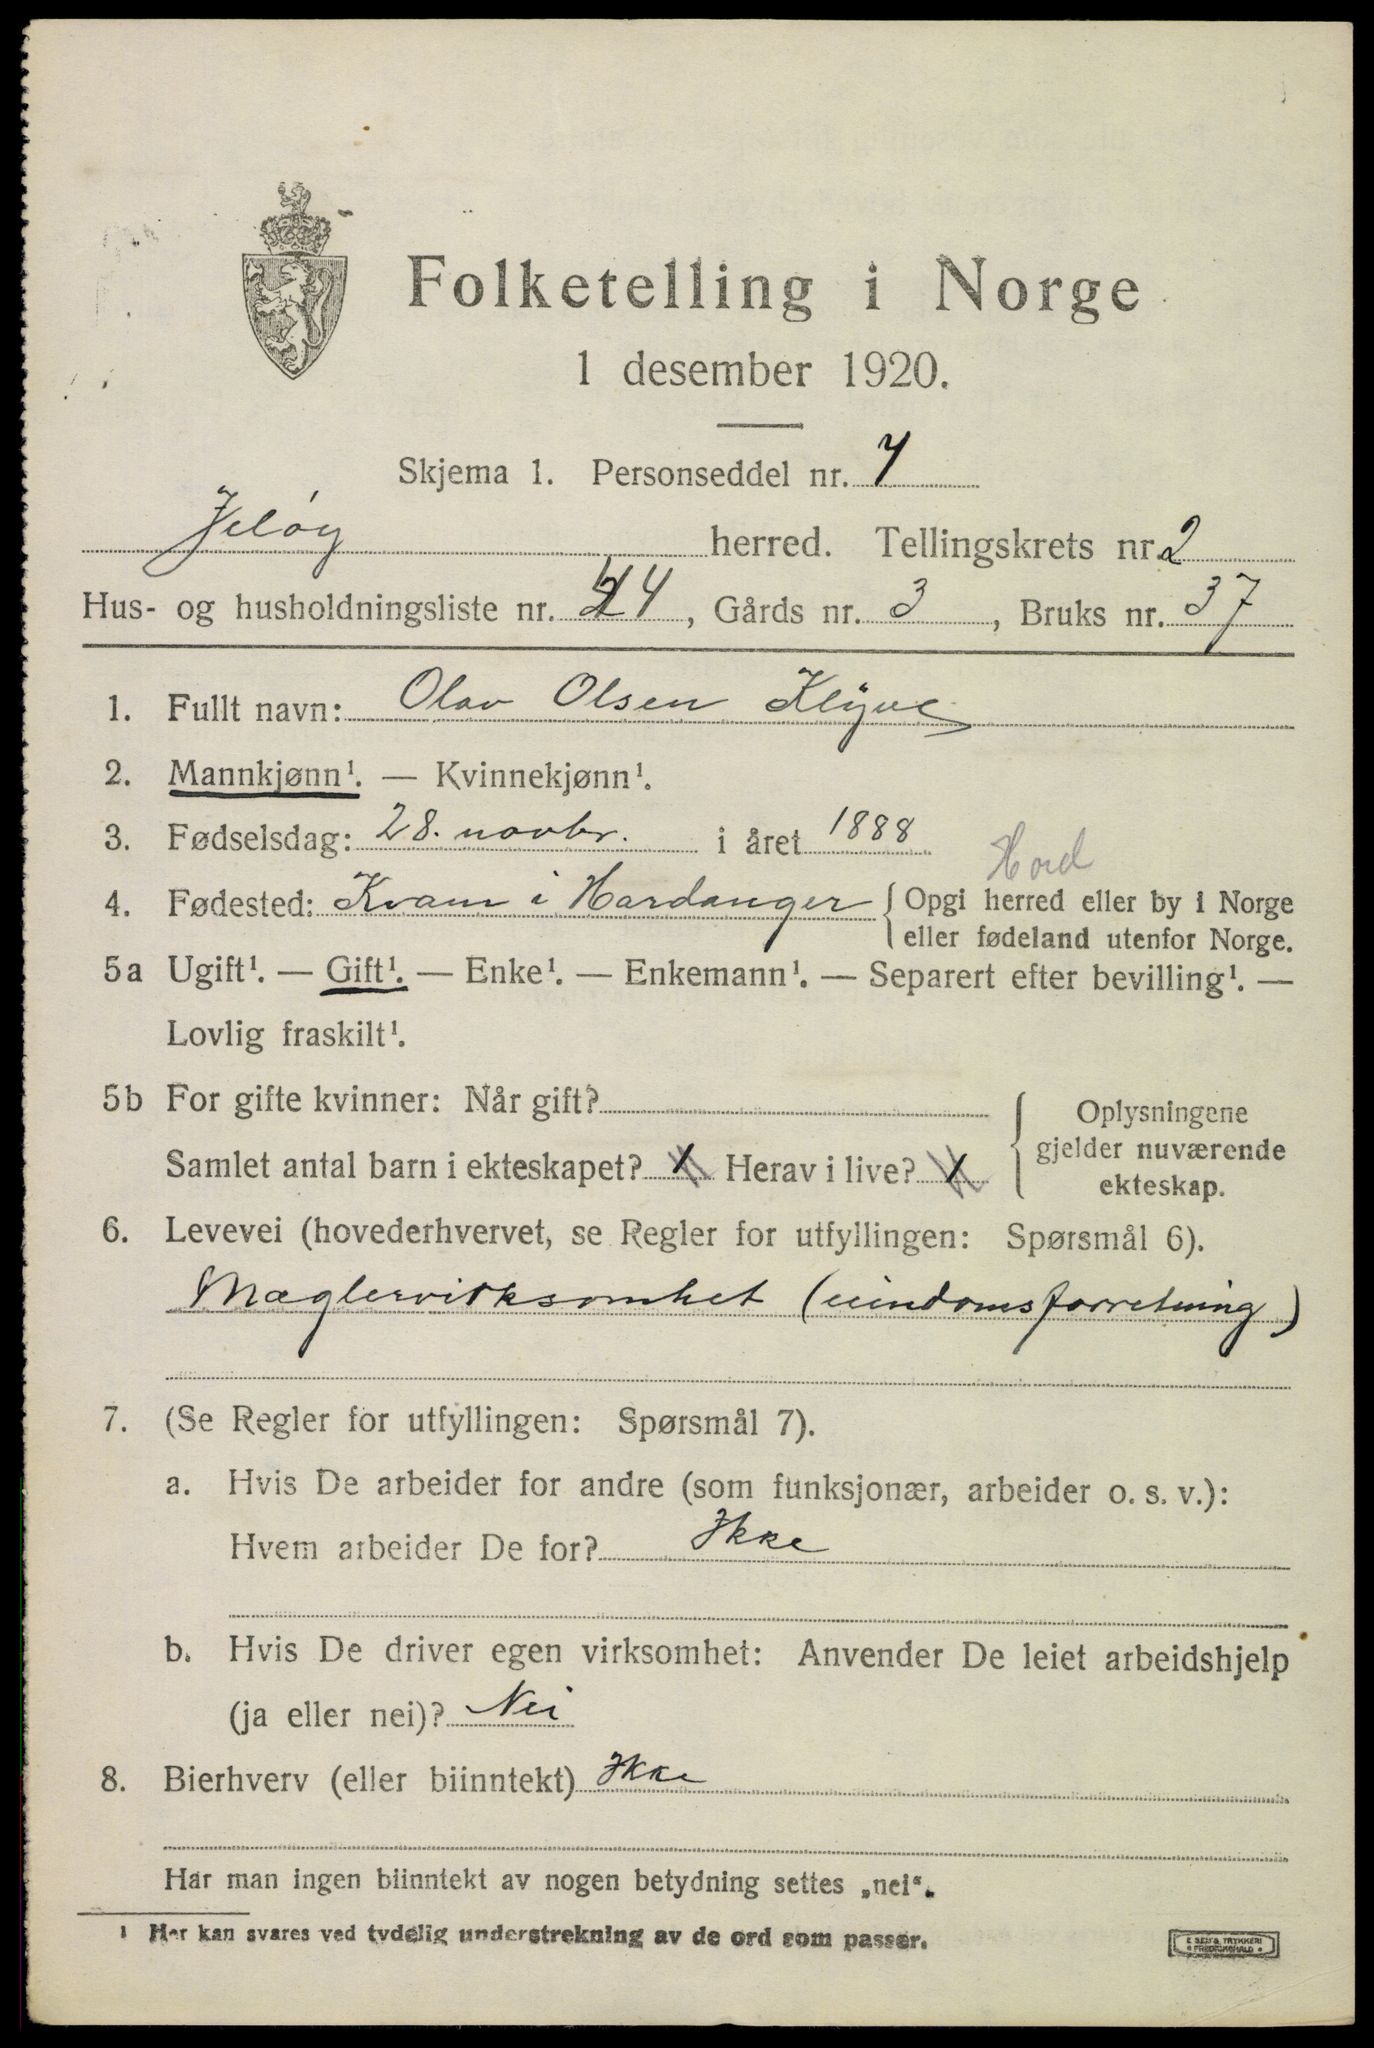 Folketelling i Norge
1 desember 1920.
Skjema 1. Personseddel nr. 7
Jeløy herred. Tellingskrets nr. 2
Hus- og husholdningsliste nr. 44, Gårds nr. 3, Bruks nr. 37
1. Fullt navn: Olav Olsen Klyve
2. Mannkjønn¹. — Kvinnekjønn¹.
3. Fødselsdag: 28. novbr. i året 1888
Hord
4. Fødested: Kvam i Hardanger { Opgi herred eller by i Norge
eller fødeland utenfor Norge.
5a Ugift¹. — Gift¹. — Enke¹. — Enkemann¹. — Separert efter bevilling¹. —
Lovlig fraskilt¹.
5b For gifte kvinner: Når gift? { Oplysningene
gjelder nuværende
Samlet antal barn i ekteskapet? 1 Herav i live? 1
ekteskap.
6. Levevei (hovederhvervet, se Regler for utfyllingen: Spørsmål 6).
Mæglervirksomhet (eiendomsforretning)
7. (Se Regler for utfyllingen: Spørsmål 7).
a. Hvis De arbeider for andre (som funksjonær, arbeider o. s. v.):
Hvem arbeider De for? Ikke
b. Hvis De driver egen virksomhet: Anvender De leiet arbeidshjelp
(ja eller nei)? Nei
8. Bierhverv (eller biinntekt) Ikke
Har man ingen biinntekt av nogen betydning settes „nei“.
¹ Her kan svares ved tydelig understrekning av de ord som passer.
TRYKKERI
FREDRIKSHALD